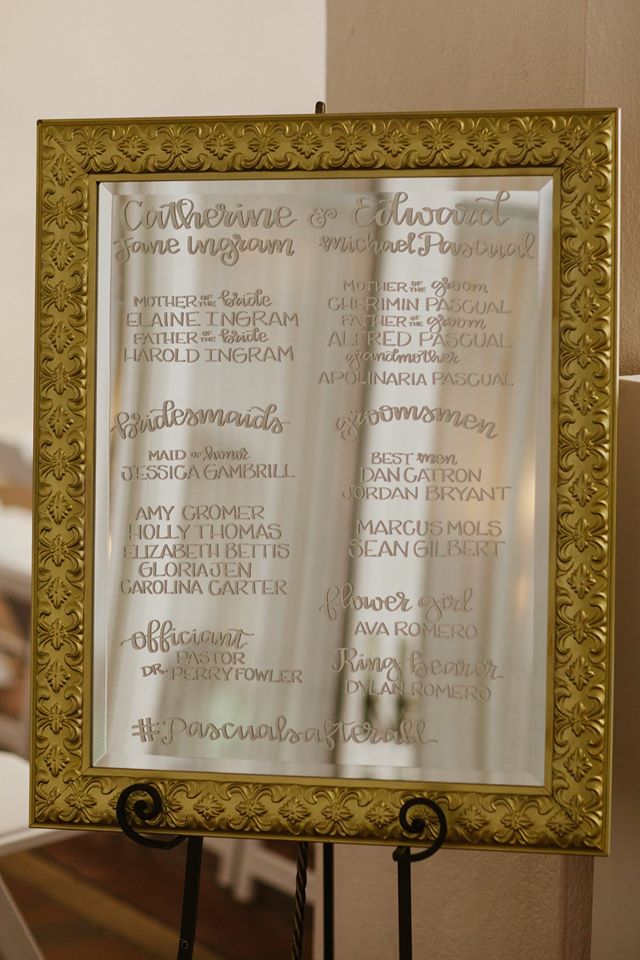 Catherine & Edward
Jane Ingram Michael Pascual
MOTHER OF THE bride
ELAINE INGRAM
FATHER OF THE bride
HAROLD INGRAM
MOTHER OF THE groom
CHERIMIN PASCUAL
FATHER OF THE groom
ALFRED PASCUAL
grandmother
APOLINARIA PASCUAL
bridesmaids
MAID of honor
JESSICA GAMBRILL
AMY CROMER
HOLLY THOMAS
ELIZABETH BETTIS
GLORIA JEN
CAROLINA CARTER
officiant
PASTOR
DR. PERRY FOWLER
groomsmen
BEST men
DAN CATRON
JORDAN BRYANT
MARCUS MOLS
SEAN GILBERT
flower girl
AVA ROMERO
Ring bearer
DYLAN ROMERO
#Pascualsafterall